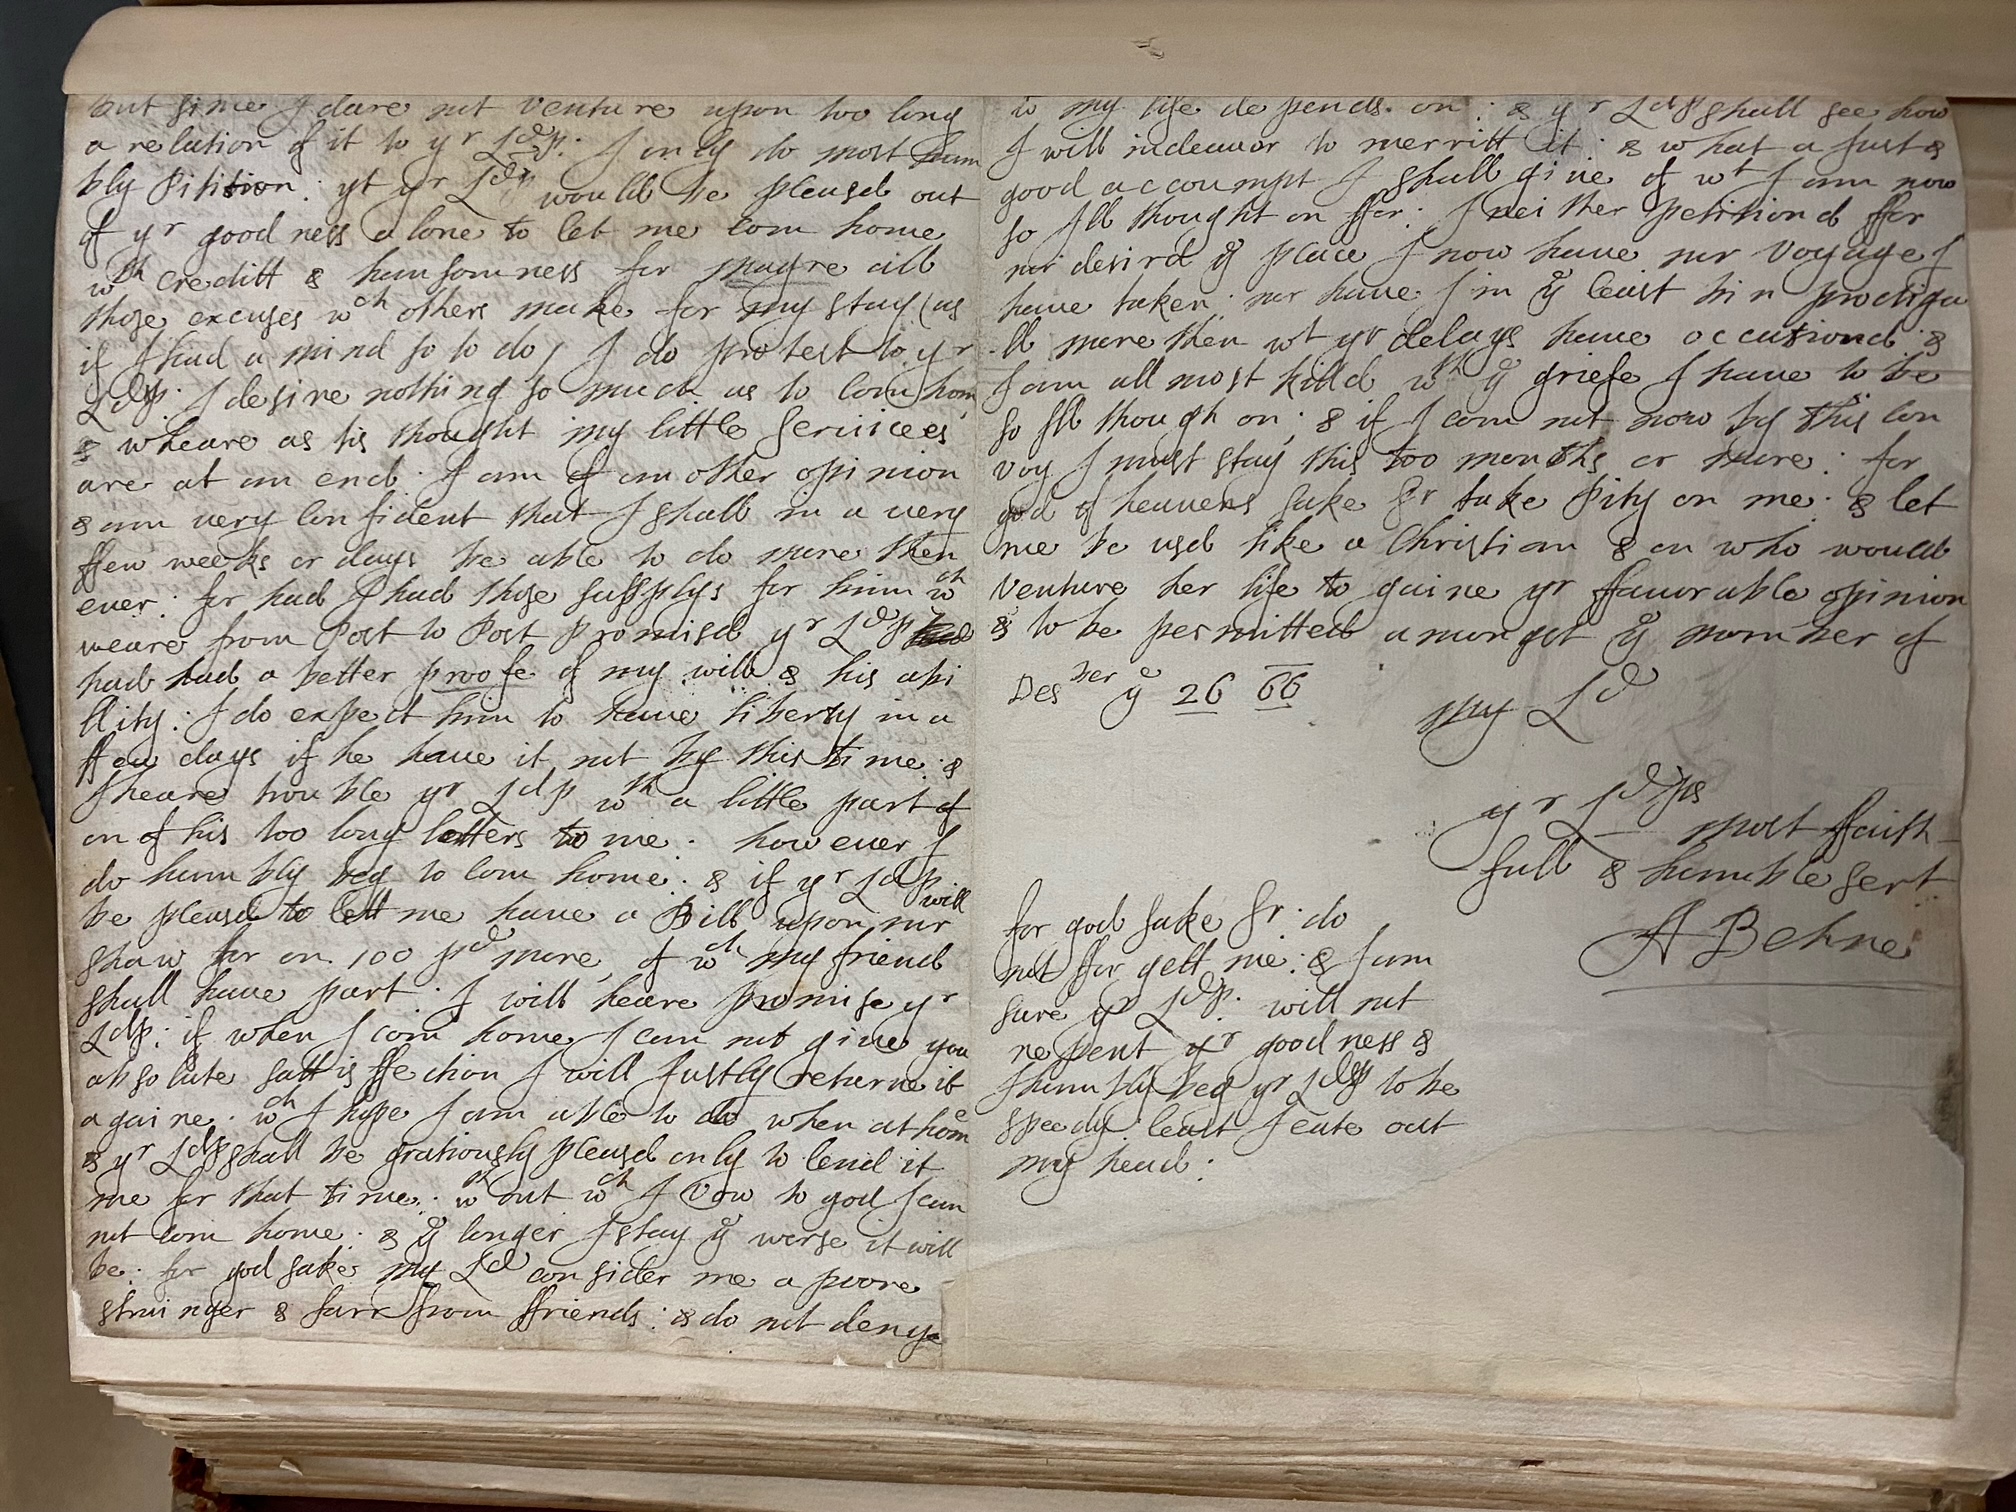 but since I dare not Venture upon too long
a relation of it to yr Ldp: I only do most hum
bly Pitition: yt yr Ldp would be pleasd out
of yr good ness a lone to let me com home
wth creditt & hansomness for maugre all
those excuses wch others make for my stay (as
if I had a mind so to do) I do protest to yr
Ldsp: I desire nothing so much as to com hom
& wheare as tis thought my little Serviicees
are at an end: I am of an other opinion
& am very confident that I shall in a very
ffew weeks or days be able to do more then
ever: for had I had those supplys for him wch
weare from Post to Post promisd yr Ldp
had had a better proofe of my will & his abi
llity: I do expect him to have liberty in a
ffew days if he have it not by this time: &
I heare trouble yr Ldp wth a little part of
on of his too long letters to me: however I
do humbly beg to com home: & if yr Ldp will
be pleasd to lett me have a Bill upon mr
shaw for on 100 pd more, of wch my friend
shall have part: I will heare promise yr
Ldp: if when I com home I can not give you
absolute sattisffection I will justly returne it
againe: wch I hope I am able to do when at home
& yr Ldp shall be gratiously pleasd only to lend it
me for that time: wth out wch I Vow to god I can
not com home: & ye longer I stay ye worse it will
be: for god sake my Ld consider me a poore
strainger & farr from ffriends: & do not deny
to my life de pends on: & yr Ldp shall see how
I will indeavor to merritt it: & what a just &
good accoumpt I shall give of wt I am now
so Ill thought on ffor: I neither petitiond ffor
nor desird ye place I now have nor voyage I
have taken: nor have I in ye least bin prodiga
ll more then wt yr delays have occationd: &
I am all most killd wth ye griefe I have to be
so Ill though on: & if I com not now by this con
voy I must stay this too months or more: for
god of heavens sake Sr take Pity on me: & let
me be usd like a Christian & on who would
Venture her life to gaine yr ffavorable opinion
& to be permitted amongst ye nomber of
Desber ye 26 66
my Ld
yr Ldps
most ffaith
full & humble sert
A Behne
for god sake Sr: do
not ffor gett me: & I am
sure yr Ldp: will not
repent yr good ness &
I humbly beg yr Ldsp to be
speedy least I eate out
my head: